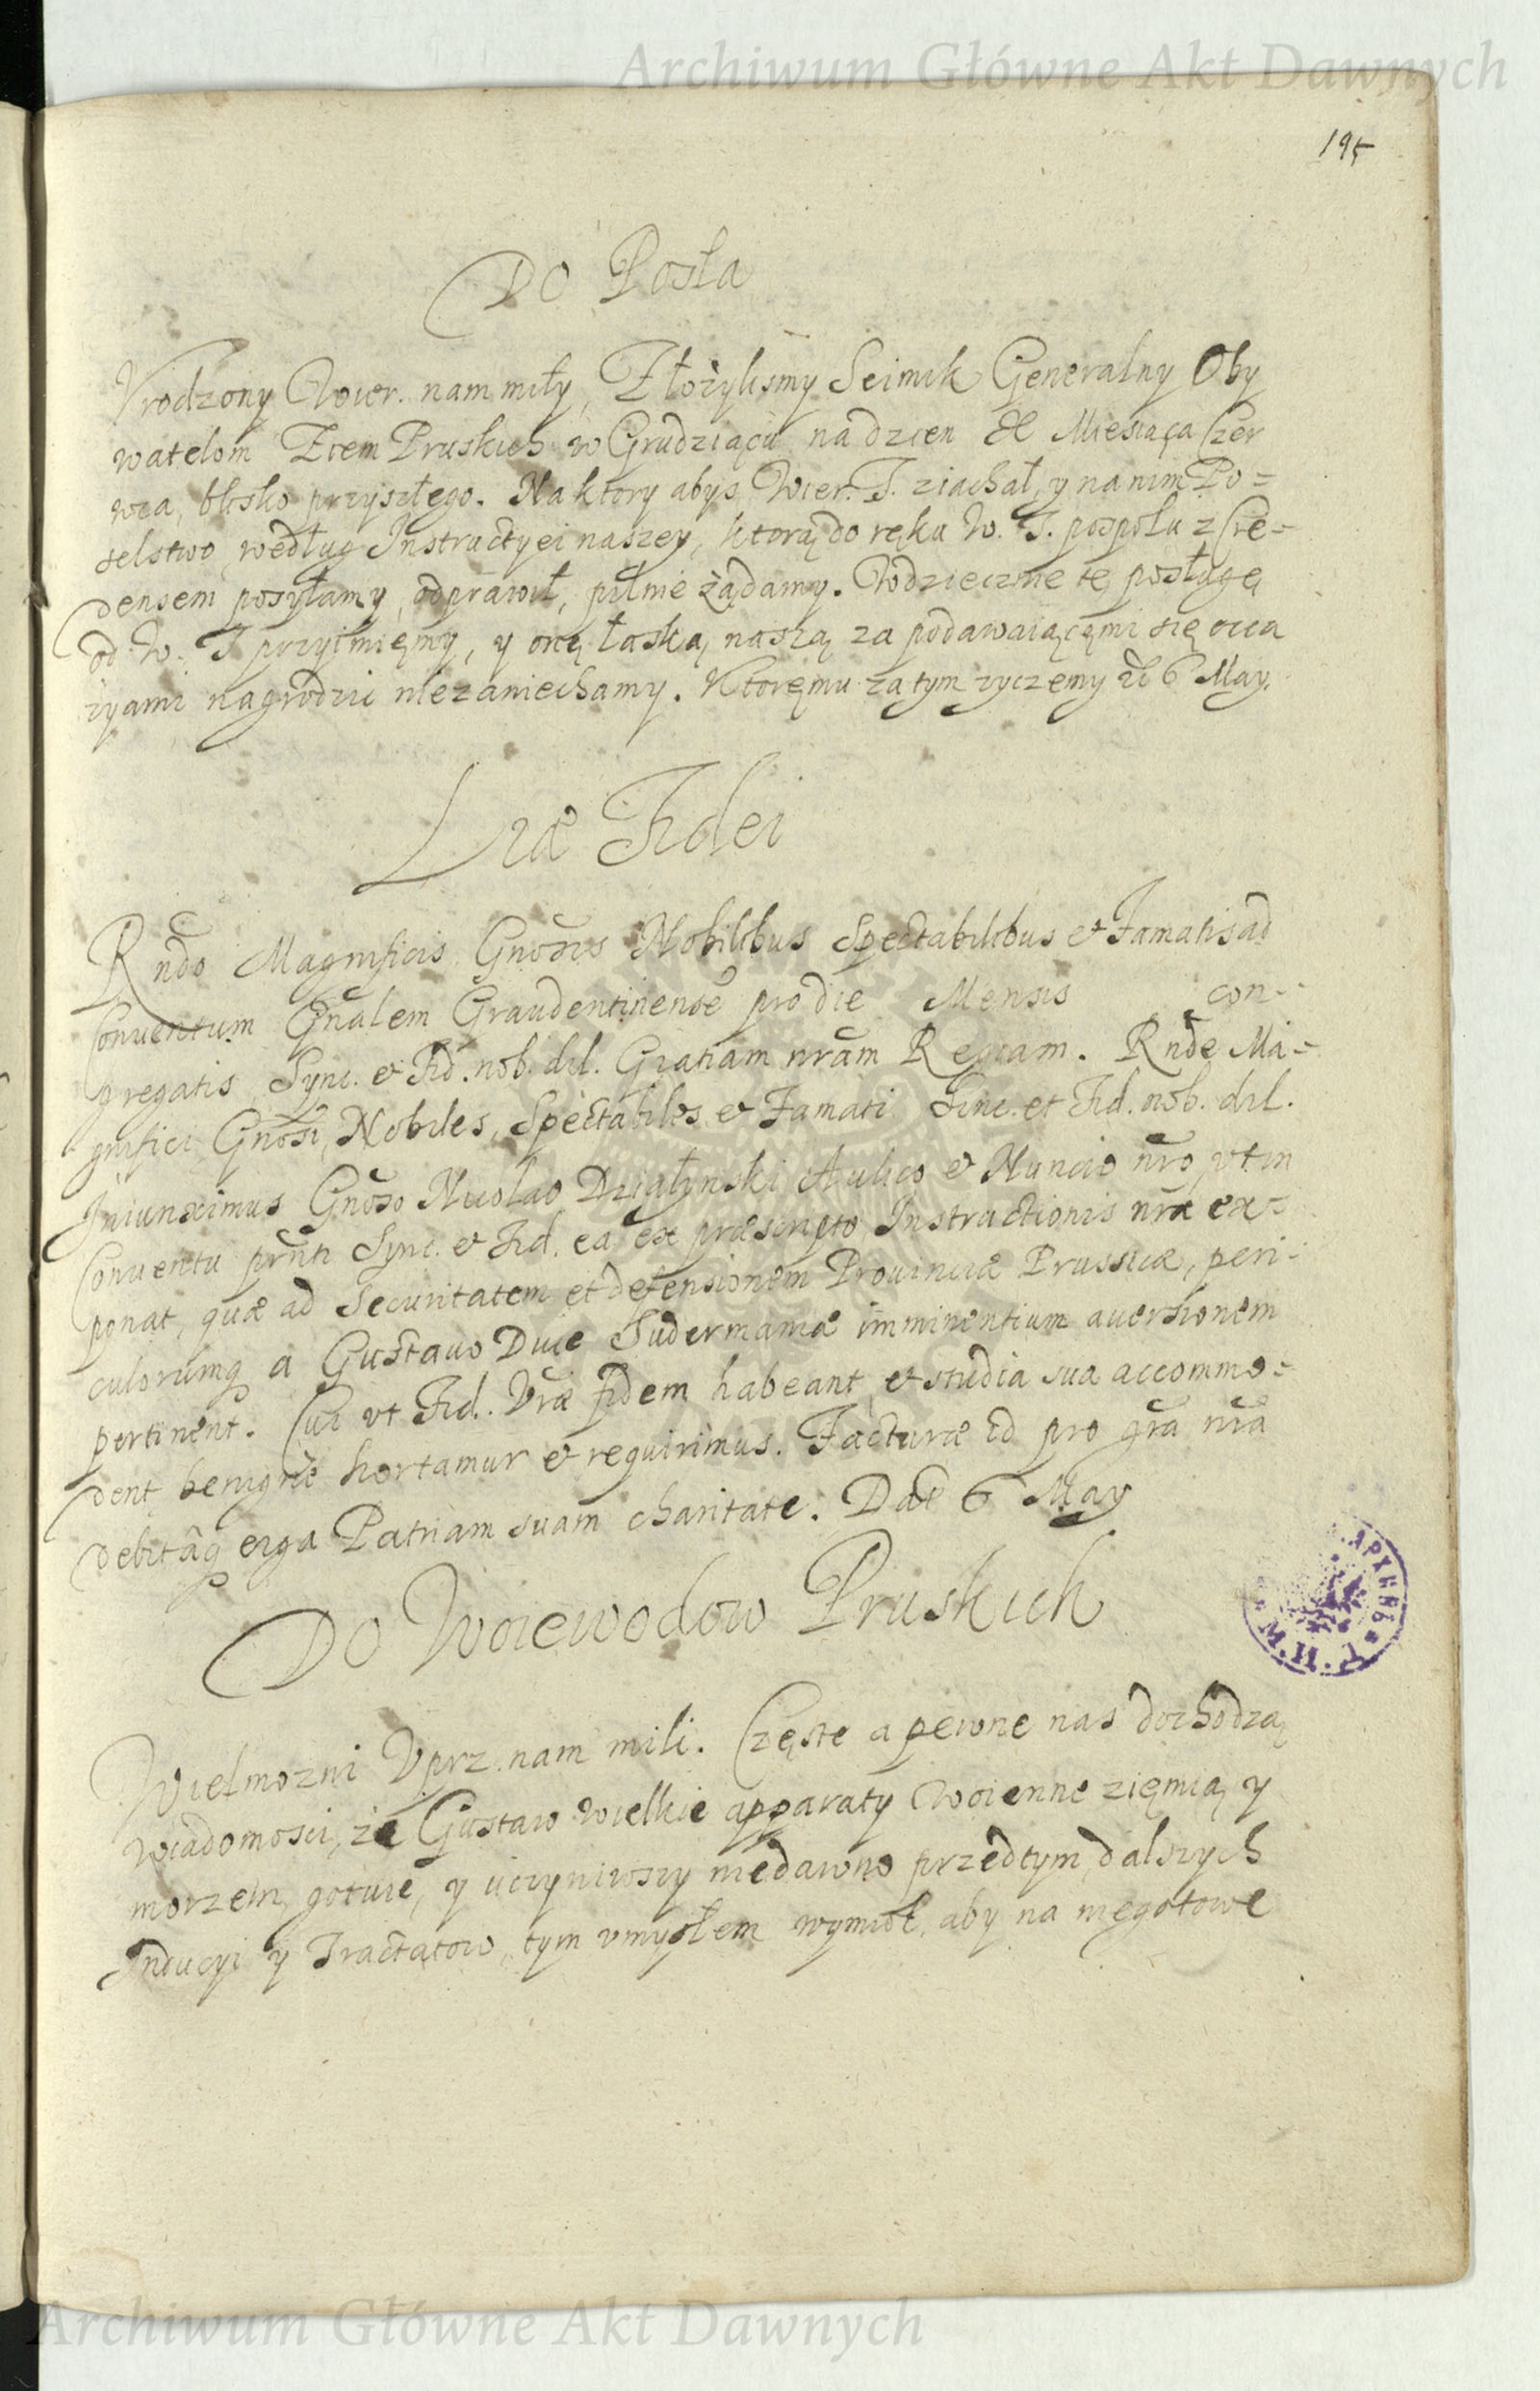 Archiwum Główne Akt Dawnych
195
Do Posła
Vrodzony Wier. nam miły, Złożylismy Seimik Generalny Oby
watelom Ziem Pruskich w Grudziącu na dzien etc Miesiąca Czer
wca, blisko przyszłego. Na ktory abys Wier. T. ziachał, y na nim Po=
selstwo według Instructyei naszey, ktorą do ręku W. T. pospołu z Cre=
densem posyłamy, odprawił, pilnie żądamy. Wdzieczne tę posługę
od W. T przyimięmy, y onę łaską naszą za podawaiącęmi się occa
zyami nagrodzic niezaniechamy. Ktoręmu zatym zyczemy etc 6 May.
Lræ Fidei
Rndo Magnificis Gnosis Nobilibus Spectabilibus et Famatis ad
Conuentum Gnalem Graudentinense pro die Mensis con-
gregatis Sync. et Fid. nob. dil. Gratiam nram Regiam. Rnde Ma-
gnifici Gnosi, Nobiles, Spectabiles et Famati Sinc. et Fid. nob. dil.
Iniunximus Gnoso Nicolao Działynski Aulico et Nuncio nro, vt in
Conuentu prnti Sync. et Fid. ea ex præscripto Instructionis nræ ex=
ponat, quæ ad Securitatem et defensionem Prouinciæ Prussicæ, peri-
culorumq a Gustauo Duce Sudermaniæ imminentium auersionem
pertinent. Cui vt Fid. Vræ fidem habeant et studia sua accommo=
dent benigne hortamur et requirimus. Facturæ id pro gra nra
debitaq erga Patriam suam charitate. Dat 6 May
Do Woiewodow Pruskich
Wielmozni Vprz. nam mili. Częste a pewne nas dochodzą
wiadomosci, że Gustaw wielkie apparaty woienne zięmią y
morzem gotuie, y uczyniwszy niedawno przedtym dalszych
Inducyi y Tractatow, tym vmysłem wymiot, aby na niegotowe
Archiwum Główne Akt Dawnych